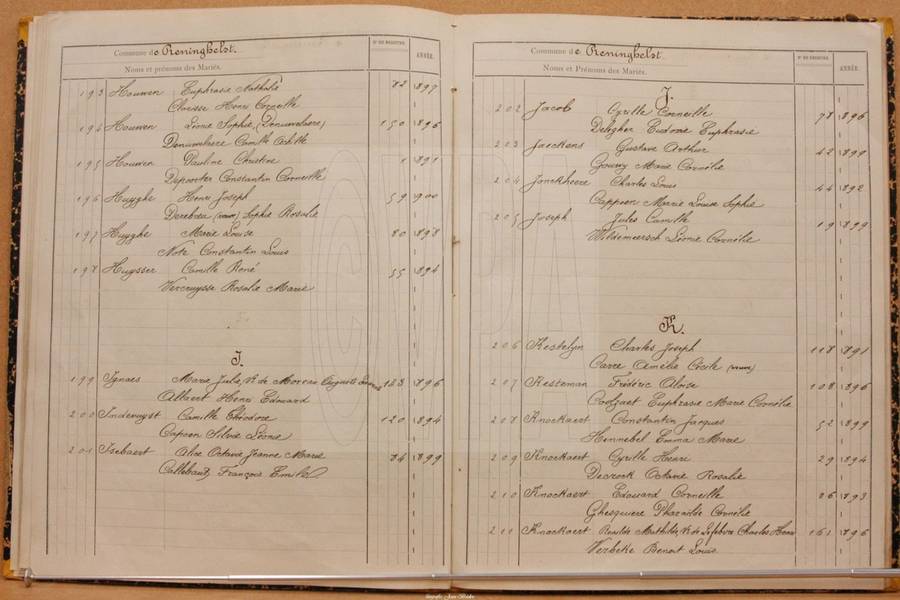 Commune de Reninghelst.
Nos et prénoms des Mariés.
N° DU REGISTRE
ANNÉE
193 Houwen Euphrasie Nathalie 72 1897
Clarisse Henri Corneille
194 Houwen Léonie Sophie, (Denuwelaere) 150 1896
Denuwelaere Camille Achille
195 Houwen Pauline Christine 1 1891
Depoorter Constantin Corneille
196 Huyghe Henri Joseph 59 1900
(veuve) Sophie Rosalie
197 Huyghe Marie Louise 80 1898
Note Constantin Louis
198 Huysser Camille René 55 1894
Vercruysse Rosalie Marie
I.
199 Ignaes Marie Julie, V. de Moreau Auguste 183 1896
Allaert Henri Edouard
200 Indevuyst Camille Théodore 120 1894
Capoen Silvie Léonie
201 Isebaert Alice Octavie Jeanne Marie 74 1899
Callebaut, François Emile
Commune de Reninghelst.
Noms et Prénoms des Mariés.
N° DU REGISTRE
ANNÉE
J.
202 Jacob Cyrille Corneille 78 1896
Delegher Eudoxie Euphrasie
203 Jaeckens Gustave Arthur 42 1899
Gouwy Marie Cornélie
204 Jonckheere Charles Louis 44 1892
Cappoen Marie Louise Sophie
205 Joseph Jules Camille 19 1899
Wildemeersch Léonie Cornélie
K.
206 Kestelyn Charles Joseph 118 1891
Carre Amélie Cécile (veuve)
207 Kesteman Frédéric Aloise 108 1896
Coolsaet Euphrasie Marie Cornélie
208 Knockaert Constantin Jacques 52 1899
Hennebel Emma Marie
209 Knockaert Cyrille Henri 29 1894
Decrock Octavie Rosalie
210 Knockaert Edouard Corneille 86 1893
Ghesquiere Pharaïlde Cornélie
211 Knockaert Mathilde, V. de Lefebvre Charles Henri 161 1896
Verbeke Benoit Louis